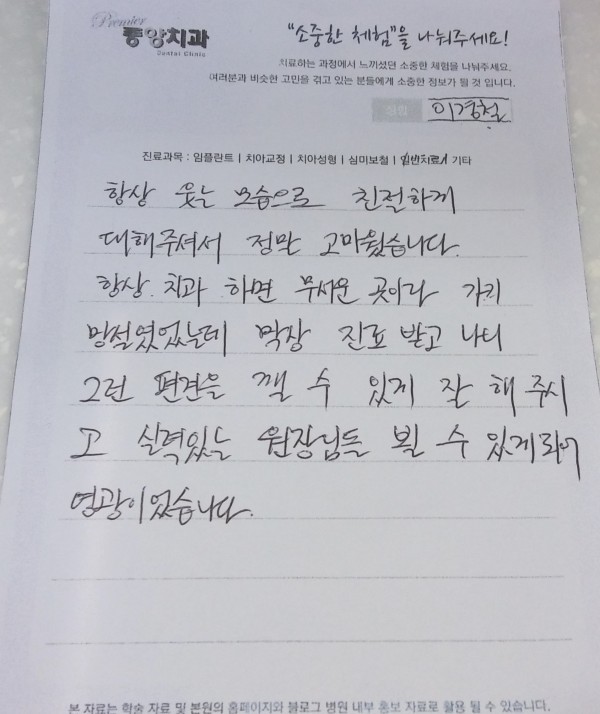 Premier
중앙치과
Dental Clinic
"소중한 체험"을 나눠주세요!
치료하는 과정에서 느끼셨던 소중한 체험을 나눠주세요.
여러분과 비슷한 고민을 겪고 있는 분들에게 소중한 정보가 될 것 입니다.
성함 이경철
진료과목 : 임플란트 | 치아교정 | 치아성형 | 심미보철 | 일반치료 | 기타
항상 웃는 모습으로 친절하게
대해주셔서 정만 고마웠습니다.
항상 치과 하면 무서운 곳이라 가기
망설였었는데 막장 진료 받고 나니
그런 편견을 깰 수 있게 잘 해 주시
고 실력있는 원장님들 뵐 수 있게 되어
영광이었습니다.
본 자료는 학술 자료 및 본원의 홈페이지와 블로그 병원 내부 홍보 자료로 활용 될 수 있습니다.